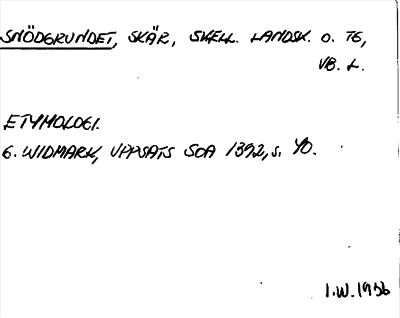 SNÖDGRUNDET, SKÄR, SKELL. LANDSK. O. TG,
VB. L.
ETYMOLOGI.
G. WIDMARK, UPPSATS SOA 1392, s. 40.
I.W. 1956